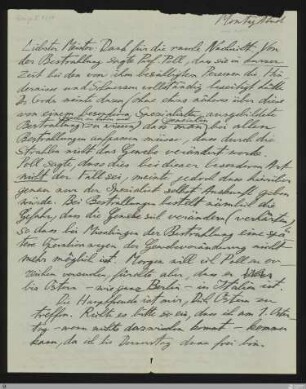 Montag Abend
Liebster Meister. Dank für die rasche Nachricht. Von
der Bestrahlung sagte Prof. Poll, dass sie in kurzer
Zeit bei den von ihm bestrahlten Personen die
und vollständig beseitigt hätte.
In Gerda meinte dass, ohne etwas näheres über diese
von einem besonderen Spezialisten ausgebildete
Bestrahlung zu wissen, dass man bei allen
Bestrahlungen aufpassen müsse, dass durch die
Strahlen nicht das Gewebe verändert werde.
Poll sagte, dass dies bei dieser besonderen Art
nicht der Fall sei, meinte jedoch dass
genau nur der Spezialist selbst Auskunft geben
würde. Bei Bestrahlungen besteht nämlich die
Gefahr, dass die Gewebe sich verändern
so dass bei Misslingen der Bestrahlung eine spä-
tere Operation wegen der Gewebsveränderung nicht
mehr möglich ist. Morgen will ich Poll zu er-
reichen versuchen, fürchte aber, dass er
bis Ostern - wie ganz Berlin - in Italien ist.
Die Hauptfreude ist mir, Dich Ostern zu
treffen. Richte es bitte so ein, dass ich am 1. Oster-
tag - wenn nichts dazwischen kommt - kommen
kann, da ich bis Donnerstag dann frei bin.